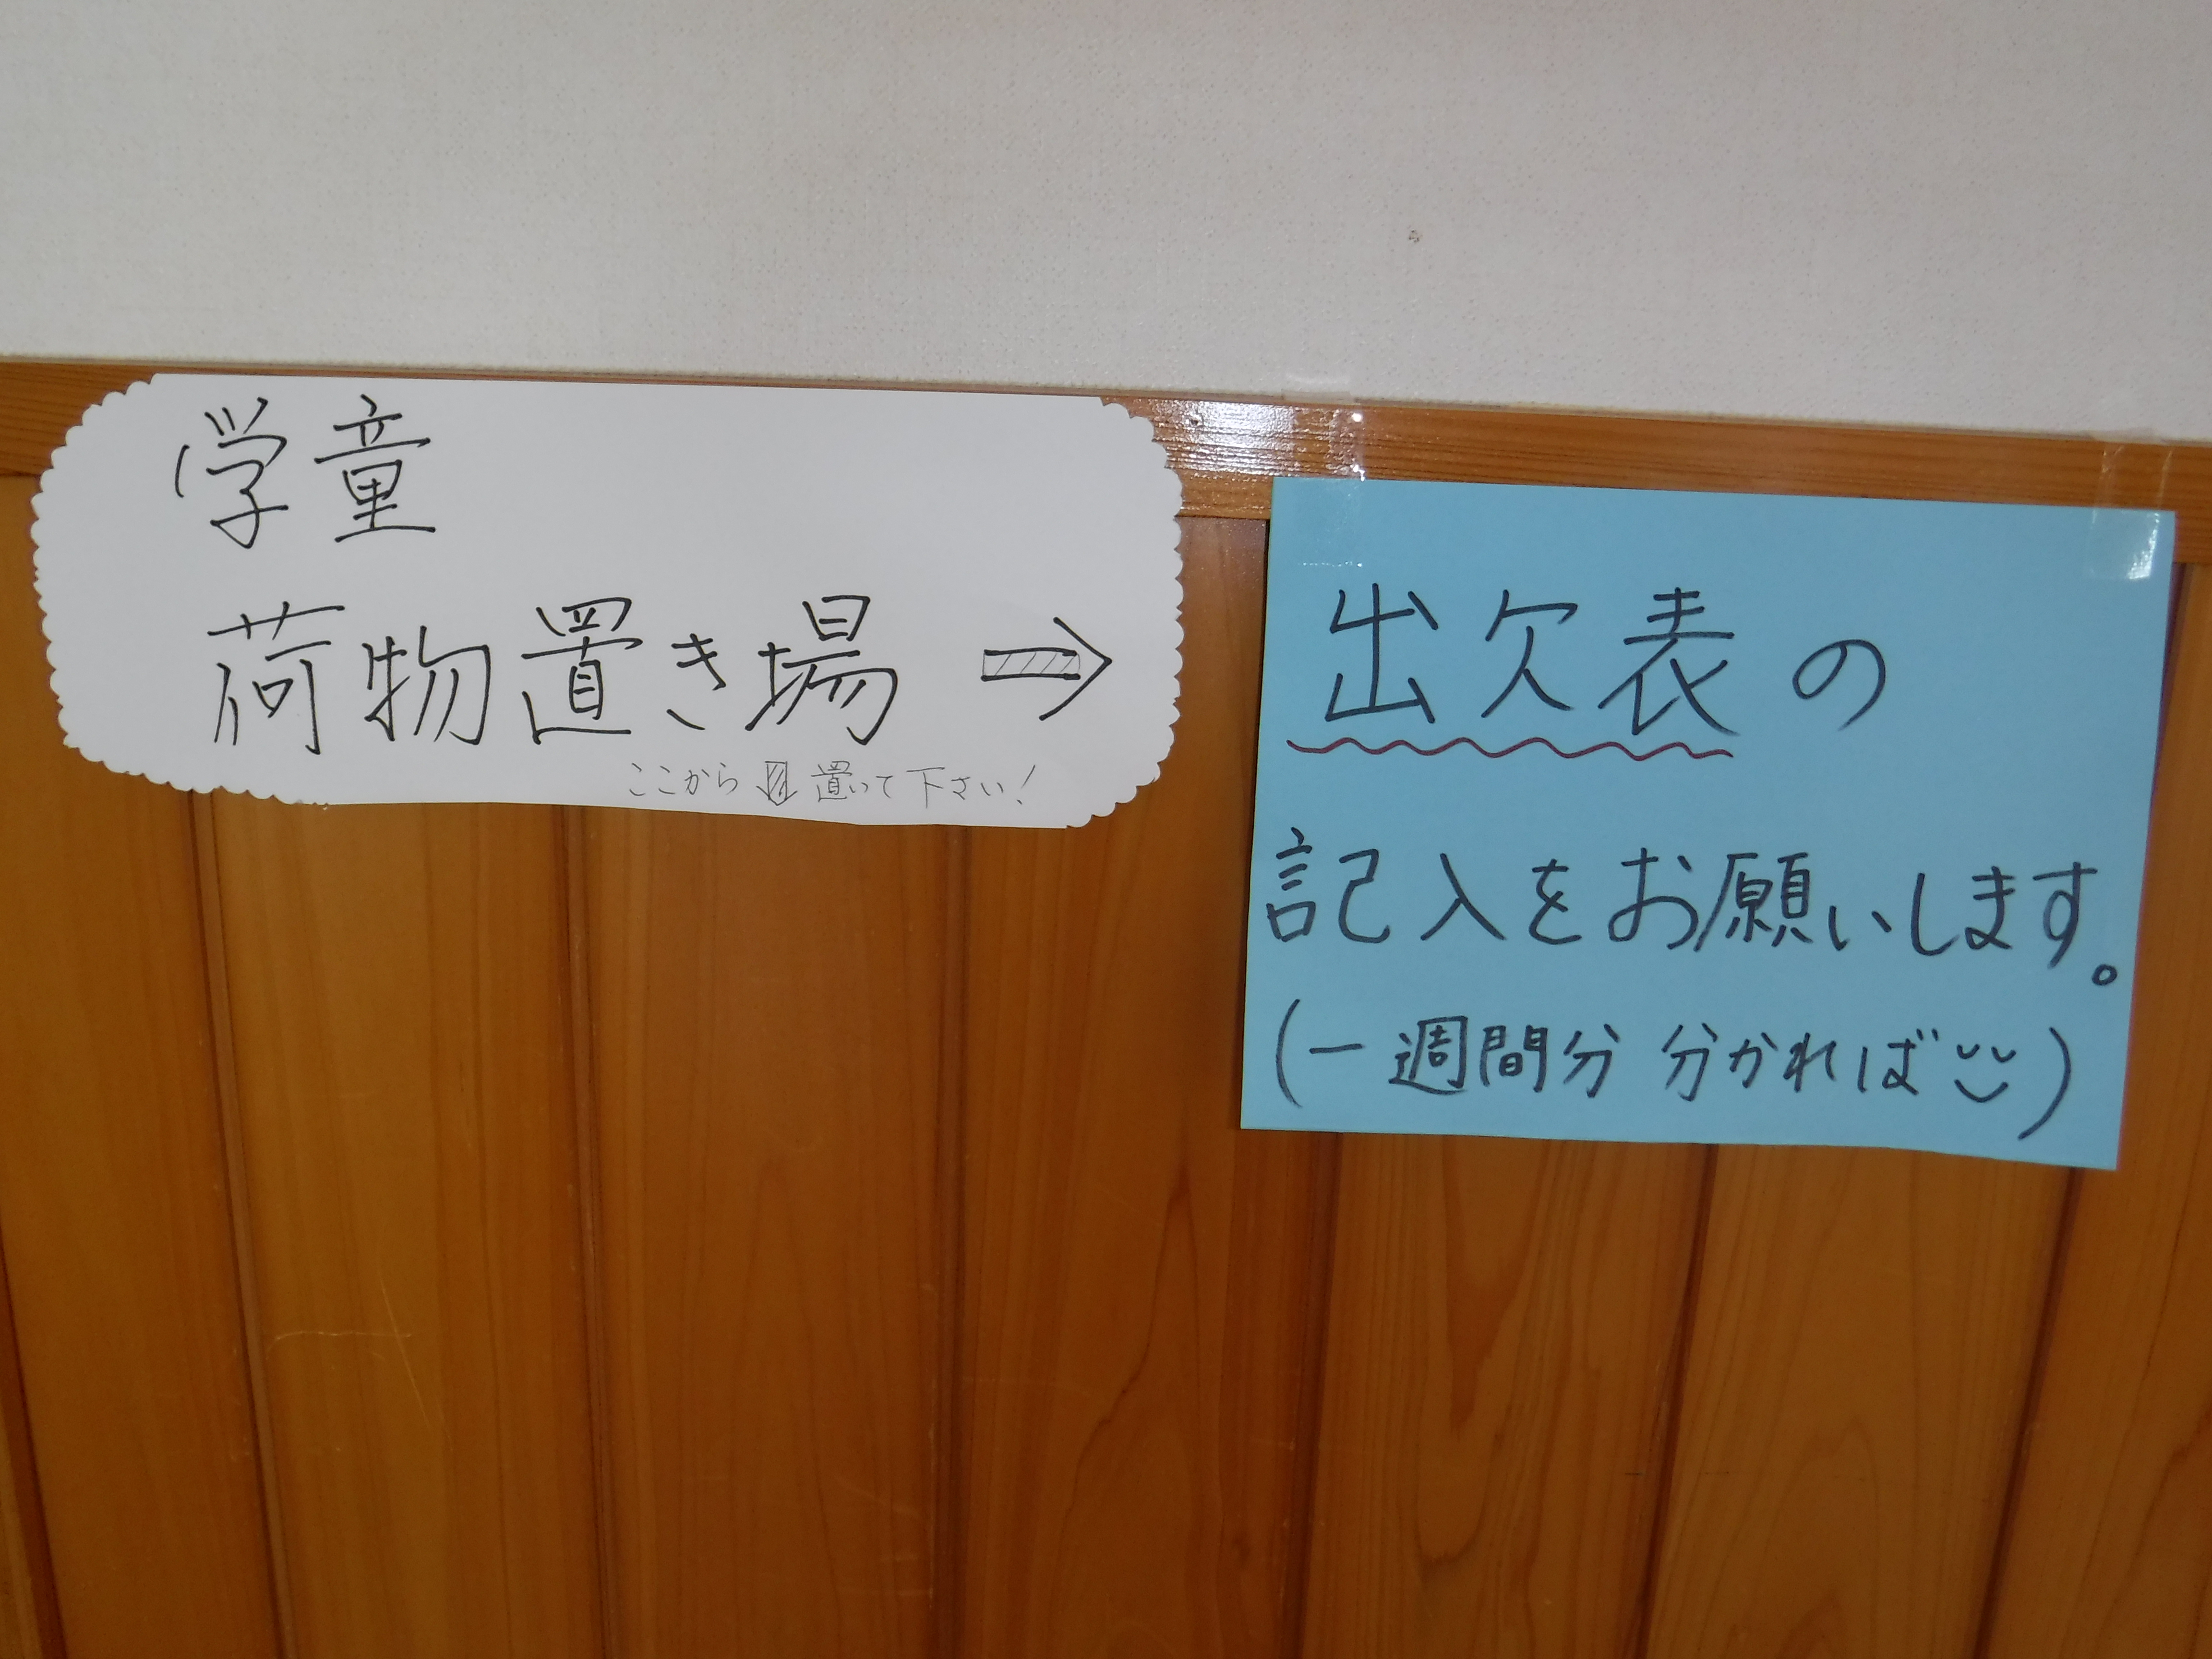 学童
荷物置き場 ⇒
ここから ⇩ 置いて下さい!
出欠表の
記入をお願いします。
(一週間分 分かれば)